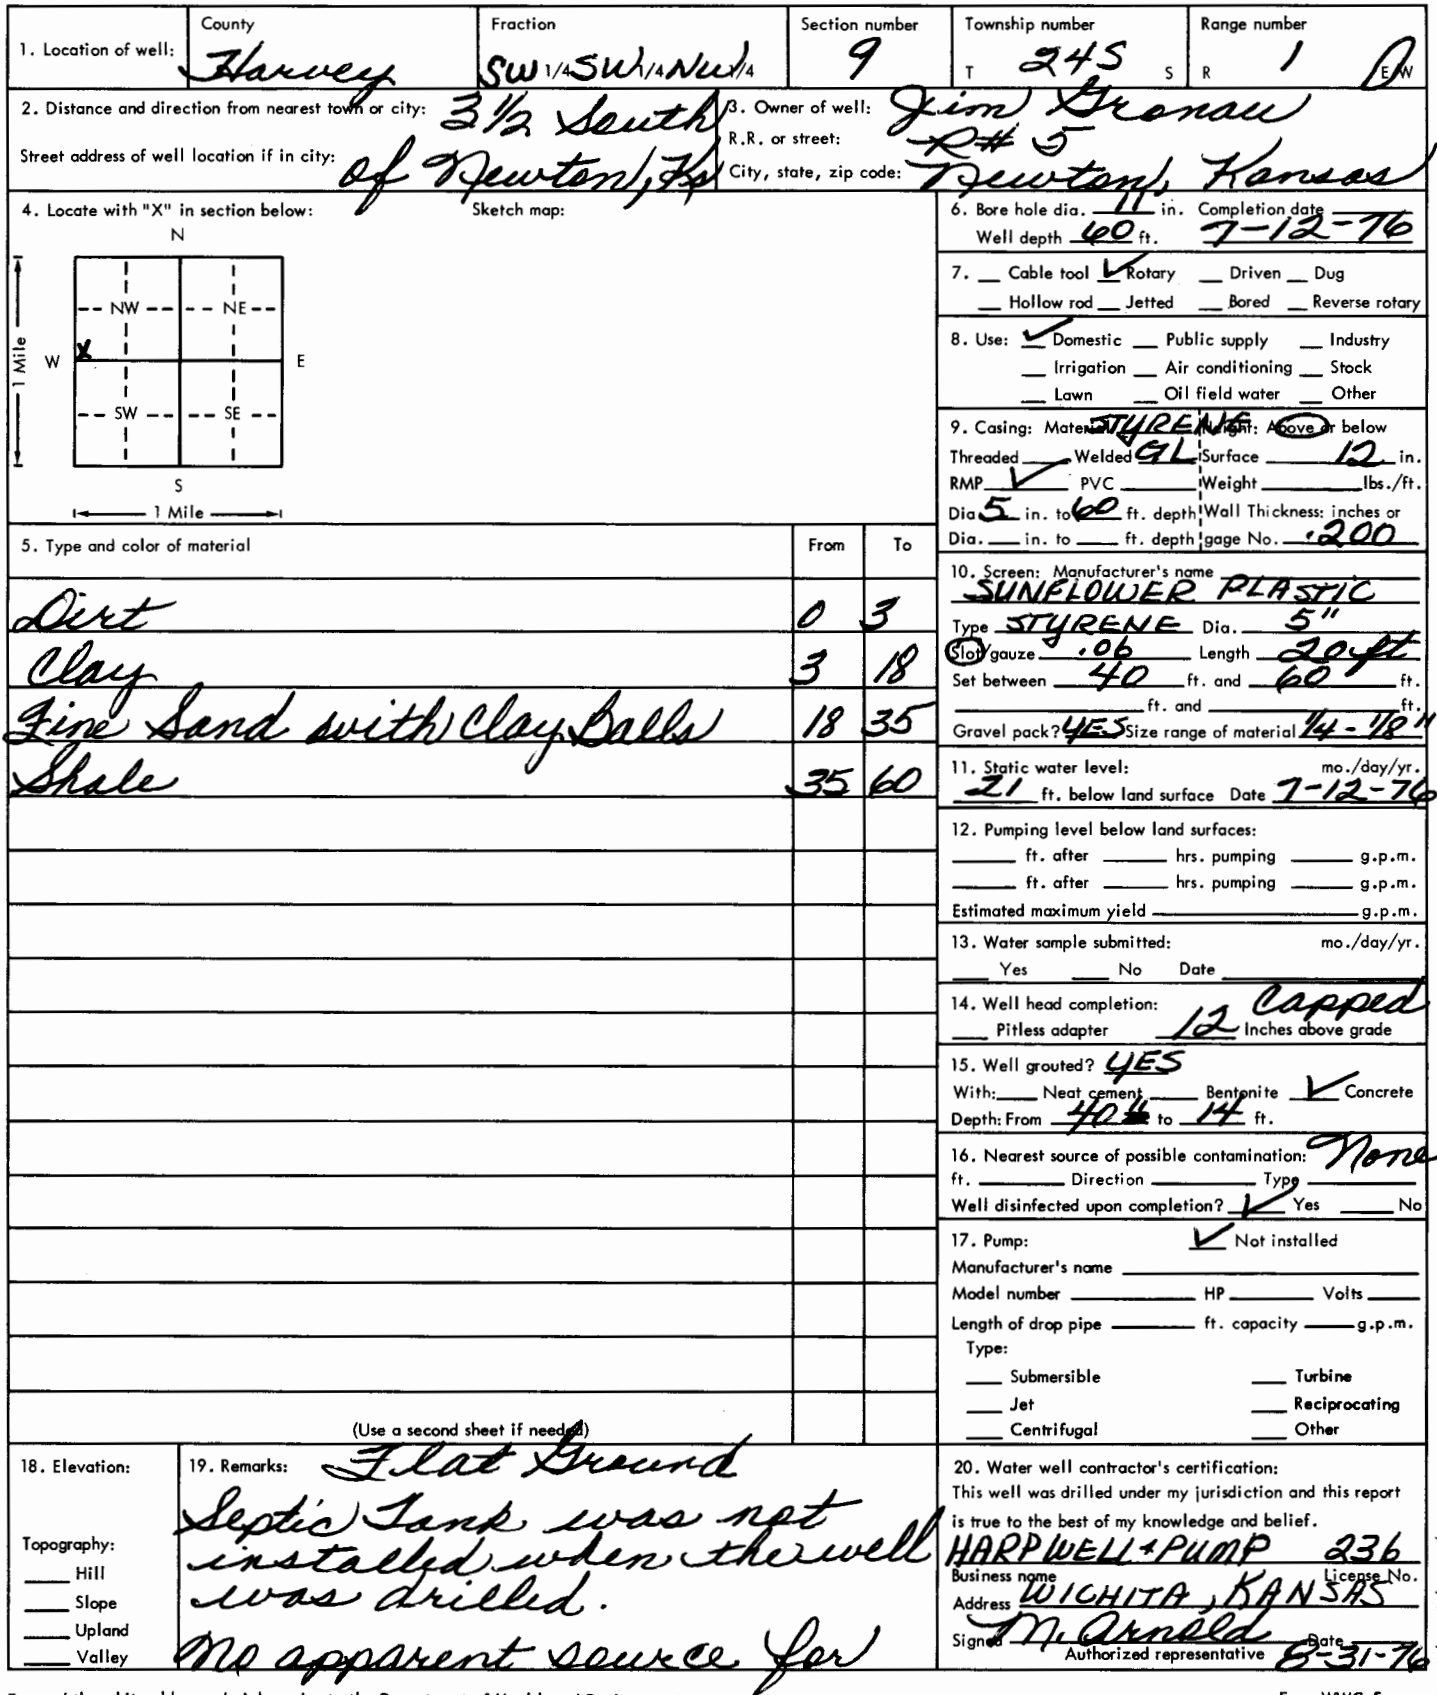 1. Location of well: County Harvey Fraction SW 1/4 SW 1/4 NW 1/4 Section number 9 Township number T 24S S Range number R 1 E/W
2. Distance and direction from nearest town or city: 3 1/2 South
of Newton, Ks
Street address of well location if in city:
3. Owner of well: Jim Gronau
R.R. or street: R# 5
City, state, zip code: Newton, Kansas
4. Locate with "X" in section below: Sketch map:
N
NW NE
W X E
SW SE
S
1 Mile
1 Mile
5. Type and color of material From To
Dirt 0 3
Clay 3 18
Fine Sand with Clay Balls 18 35
Shale 35 60
(Use a second sheet if needed)
6. Bore hole dia. 11 in. Completion date
Well depth 60 ft. 7-12-76
7. Cable tool ✓ Rotary Driven Dug
Hollow rod Jetted Bored Reverse rotary
8. Use: ✓ Domestic Public supply Industry
Irrigation Air conditioning Stock
Lawn Oil field water Other
9. Casing: Material STYRENE Height: Above or below
Threaded Welded GL Surface 12 in.
RMP ✓ PVC Weight lbs./ft.
Dia. 5 in. to 60 ft. depth Wall Thickness: inches or
Dia. in. to ft. depth gage No. .200
10. Screen: Manufacturer's name
SUNFLOWER PLASTIC
Type STYRENE Dia. 5"
Slot/gauze .06 Length 20 ft
Set between 40 ft. and 60 ft.
ft. and ft.
Gravel pack? YES Size range of material 1/4 - 1/8"
11. Static water level: mo./day/yr.
21 ft. below land surface Date 7-12-76
12. Pumping level below land surfaces:
ft. after hrs. pumping g.p.m.
ft. after hrs. pumping g.p.m.
Estimated maximum yield g.p.m.
13. Water sample submitted: mo./day/yr.
Yes No Date
14. Well head completion: Capped
Pitless adapter 12 Inches above grade
15. Well grouted? YES
With: Neat cement Bentonite ✓ Concrete
Depth: From 40" to 14 ft.
16. Nearest source of possible contamination: None
ft. Direction Type
Well disinfected upon completion? ✓ Yes No
17. Pump: ✓ Not installed
Manufacturer's name
Model number HP Volts
Length of drop pipe ft. capacity g.p.m.
Type:
Submersible Turbine
Jet Reciprocating
Centrifugal Other
18. Elevation:
Topography:
Hill
Slope
Upland
Valley
19. Remarks: Flat Ground
Septic Tank was not
installed when the well
was drilled.
No apparent source for
20. Water well contractor's certification:
This well was drilled under my jurisdiction and this report
is true to the best of my knowledge and belief.
HARP WELL & PUMP 236
Business name License No.
Address WICHITA, KANSAS
Signed M. Arnold Date 8-31-76
Authorized representative